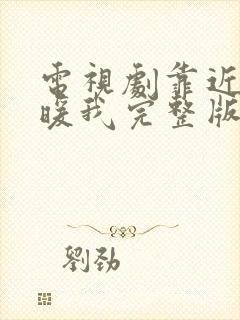 電視劇靠近
暖我完整版
劉勁